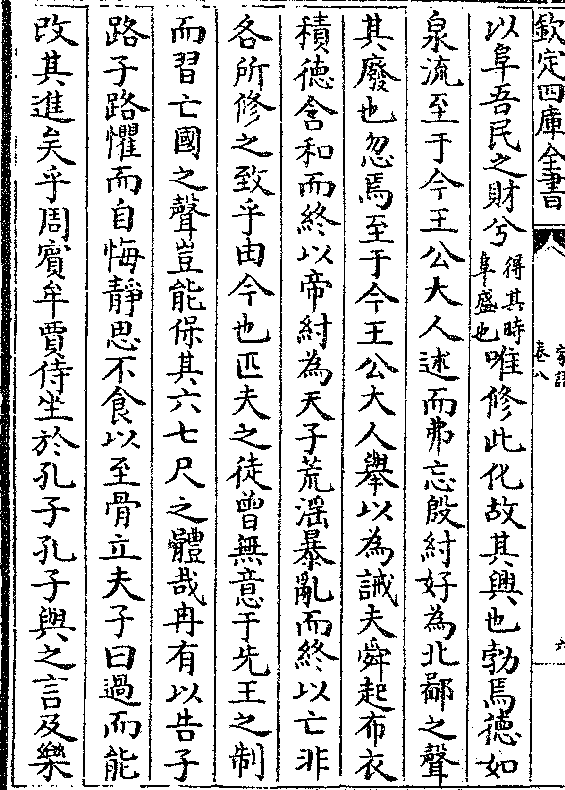 欽定四庫全書
家語
卷八
六
以阜吾民之財兮得其時阜盛也唯修此化故其興也勃焉德如
泉流至于今王公大人述而弗忘殷紂好為北鄙之聲
其廢也忽焉至于今王公大人舉以為誡夫舜起布衣
積德含和而終以帝紂為天子荒淫暴亂而終以亡非
各所修之致乎由今也匹夫之徒曾無意于先王之制
而習亡國之聲豈能保其六七尺之體哉冉有以告子
路子路懼而自悔靜思不食以至骨立夫子曰過而能
改其進矣乎周賓牟賈侍坐於孔子孔子與之言及樂